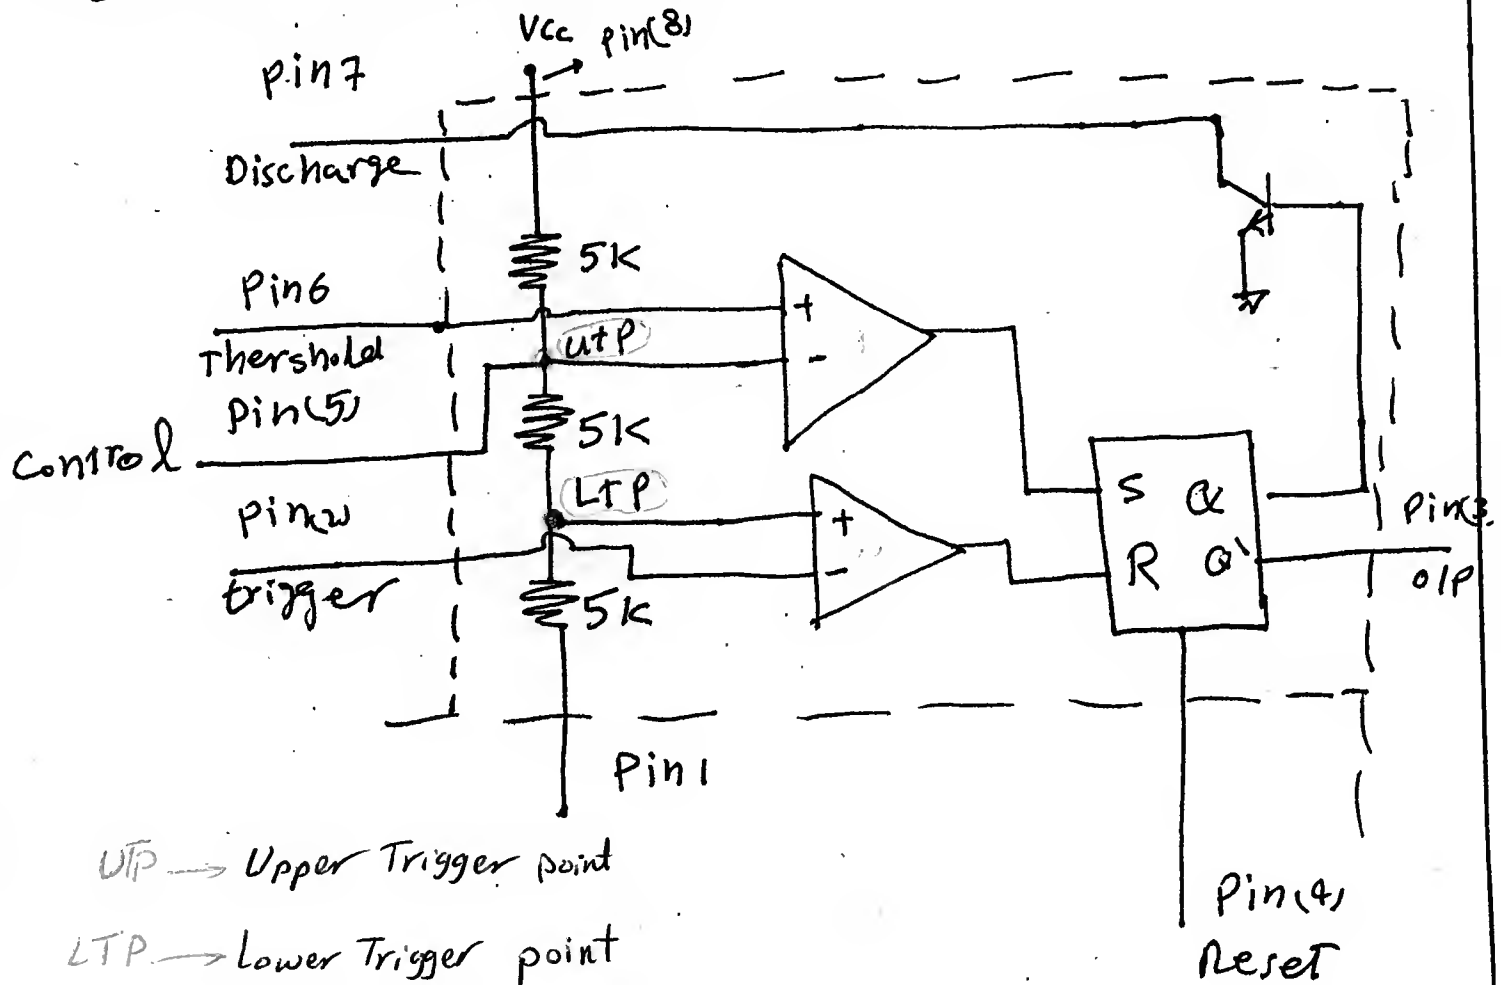 Vcc pin(8)
pin7
Discharge
5K
Pin6
Thershold
+
UTP
-
Pin(5)
5K
Control
LTP
S Q
Pin(3
+
trigger
-
R Q'
O/P
5K
Pin 1
UTP → Upper Trigger point
Pin(4)
LTP → Lower Trigger point
Reset